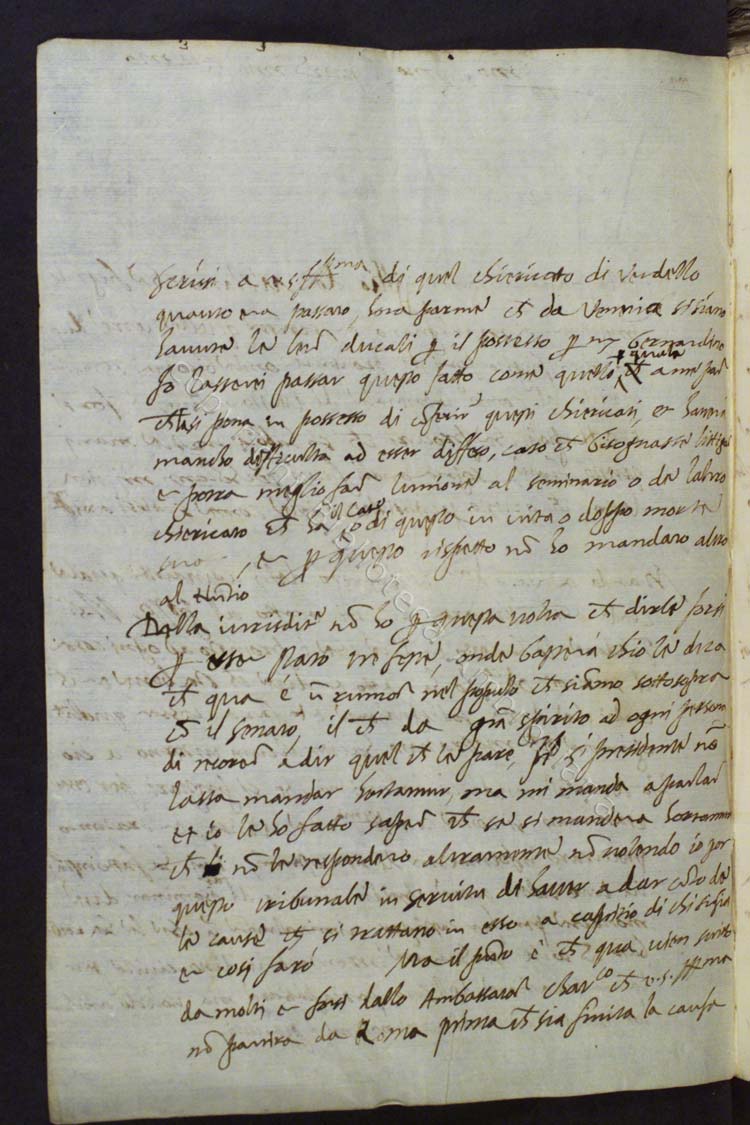 scrissi a v s Ill.ma di quel chiericato di verdello
quanto era passato, hora parme ch da Venetia si siano
havute le ducali p il possesso p Bernardino
Io lasserei passar questo fatto come quello, p quale a me par
ch si pona in possesso di questi chiericati, et havrà
mancho difficulta ad esser diffeso, caso ch bisognasse litigar
et potrà meglio far lunione al seminario o de laltro
chiericato ch ha il Caro o di questo in vita o doppo morte
sua, et p questo rispetto nō ho mandato altro
al Nūcio
Della iurisditē nō ho p questa volta ch dirle forsi
p esser stato in feste, onde basterà chio le dica
ch qua è ū rumor nel populo ch siamo sottosopra
ch il senato, il ch da grā spirito ad ogni persona
di recorer a dir quel ch le pare, Il S.r presidente nō
lassa mandar hortamur, ma mi manda a parlar
et io le ho fatto saper ch se si mandera hortamur
ch nō le respondero altramente nō volendo io por
questo tribunale in servitu di haver a dar cōto de
le cause ch si trattano in esso a capricio di chi si sia
et cosi farò Ma il pūto è ch qua vien scritto
da molti et forsi dallo Ambassator ch v.s. Ill.ma
nō partira da Roma prima ch sia finita la causa